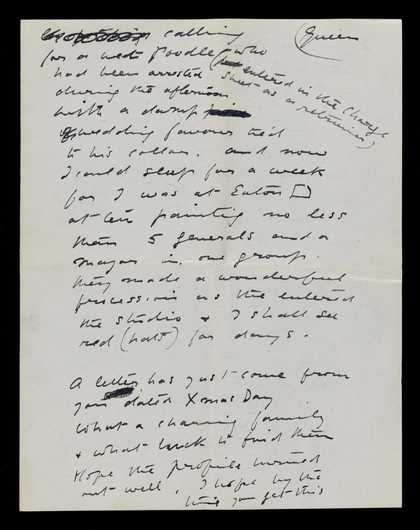 calling (Queen
for a wet Poodle, who
had been arrested (entered in the Charge
Sheet as a retriever)
during the afternoon
with a damp
wedding favour tied
to his collar. and now
I could sleep for a week
for I was at Eaton □
at ten painting no less
than 5 generals and a
major in one group.
they made a wonderful
procession as the entered
the studio & I shall see
red (hats) for days.
A letter has just come from
you dated Xmas Day
What a charming family
& what luck to find them
Hope the profile turned
out well. I hope by the
time you get this